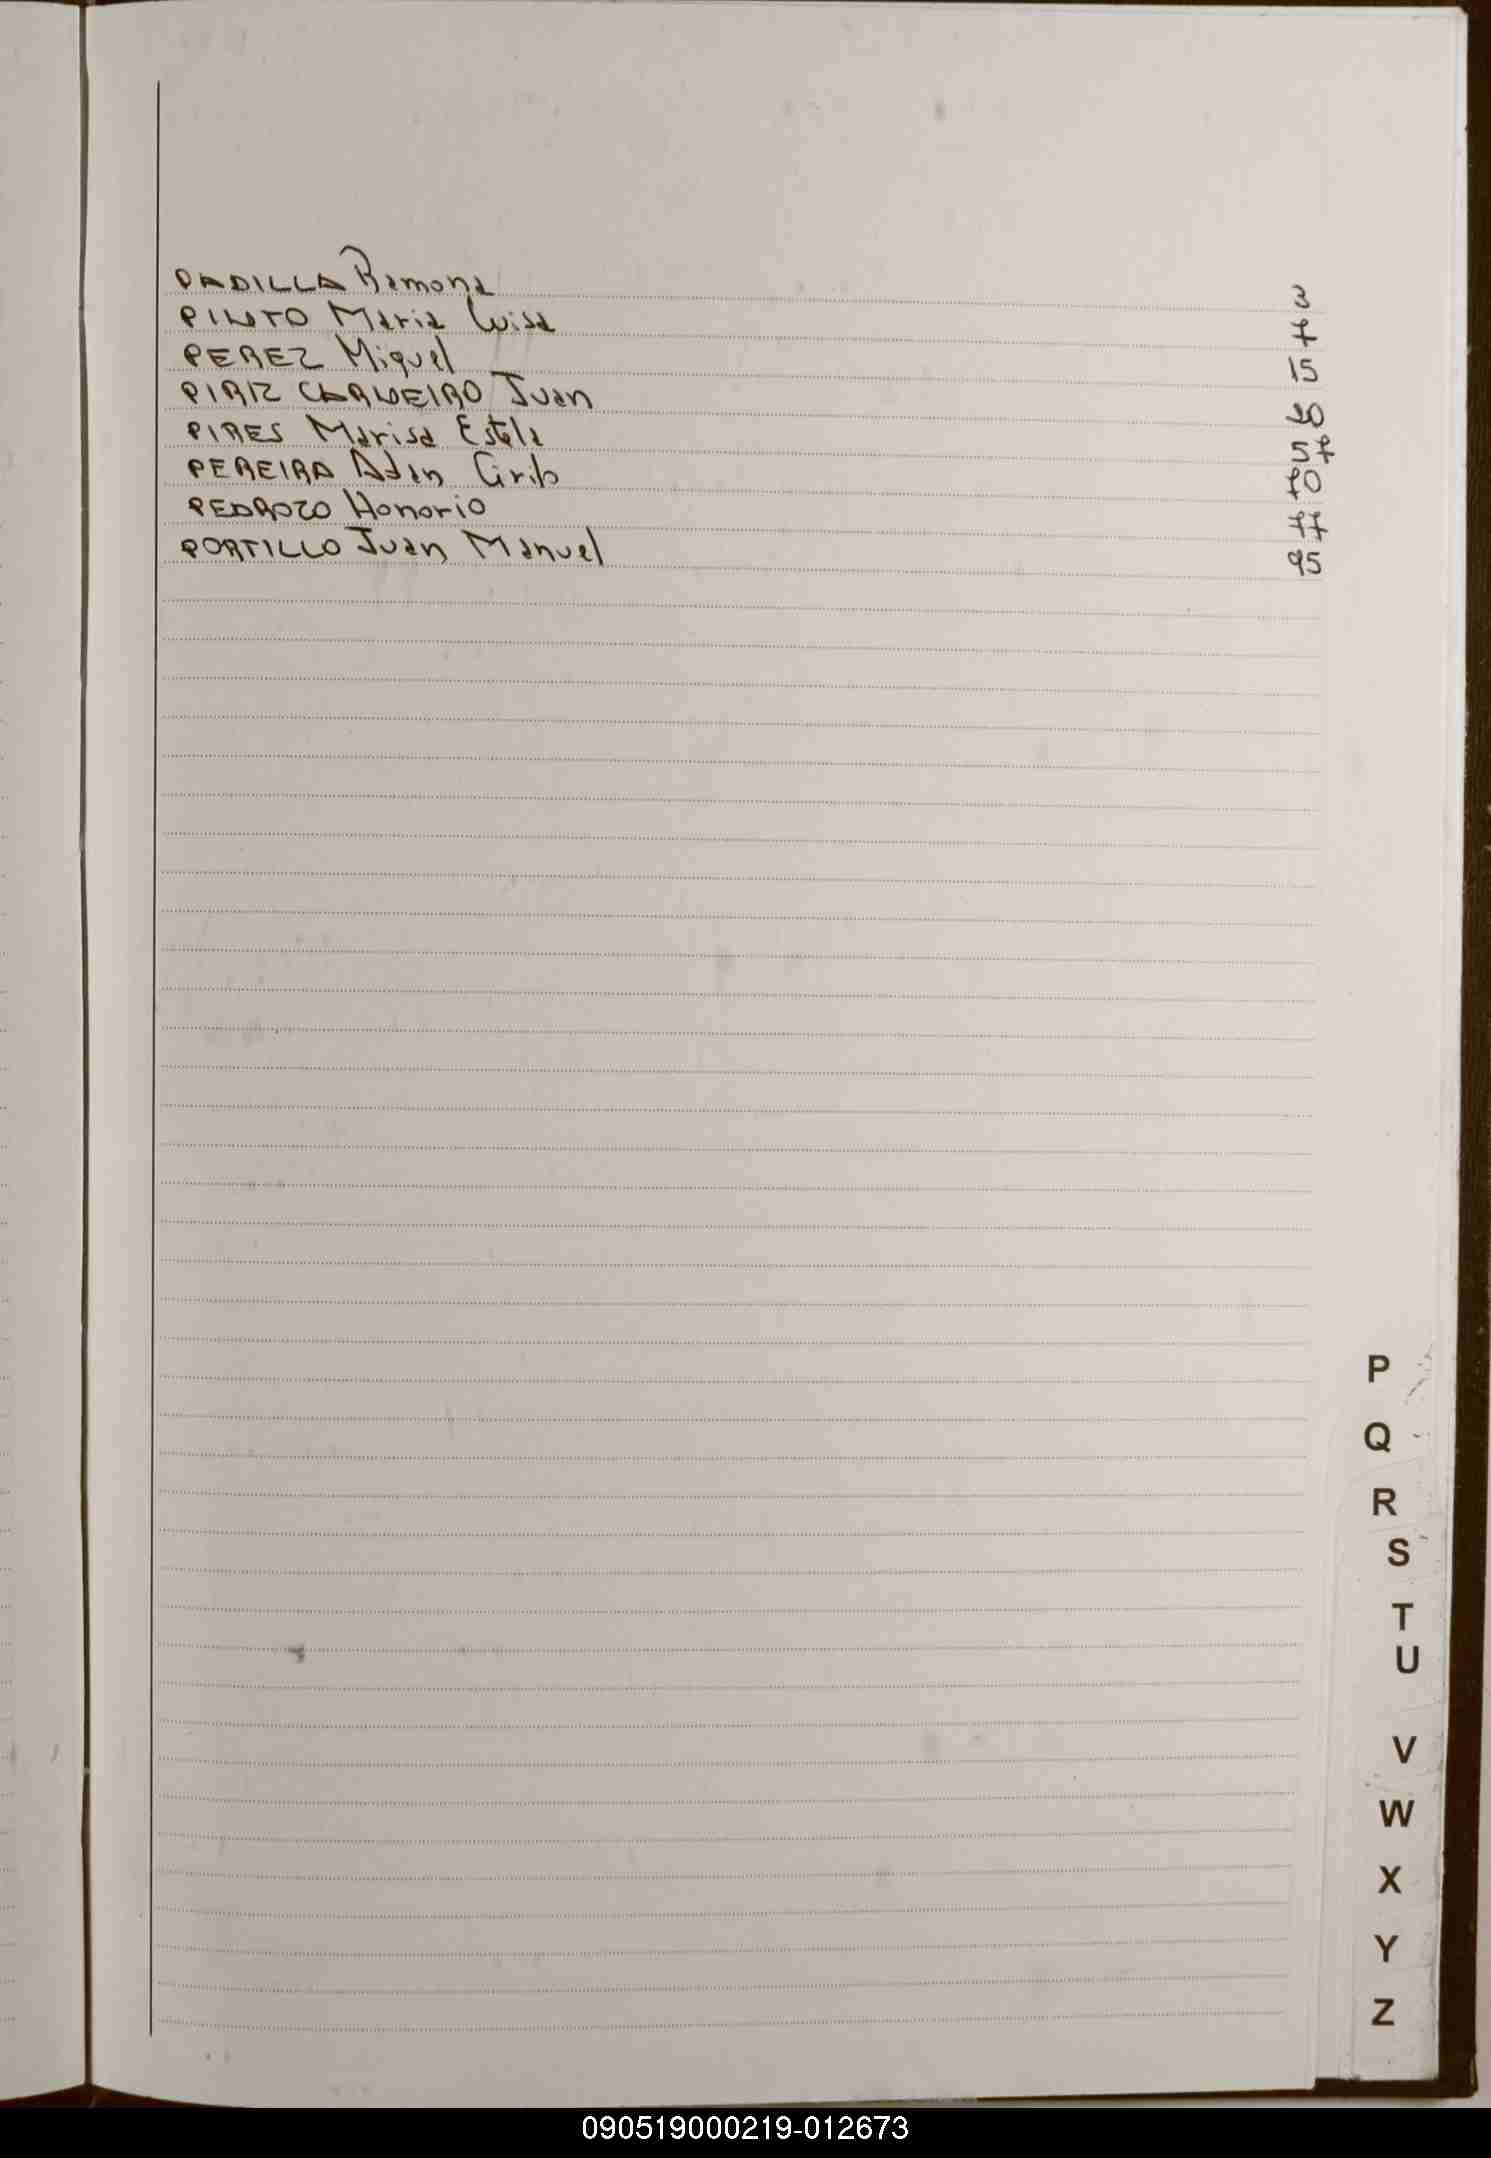 PADILLA Ramona 3
PINTO Maria Luisa 7
PEREZ Miguel 15
PIRIZ CARNEIRO Juan 20
PIRES Marisa Estela 57
PEREIRA Adan Cirilo 70
PEDROZO Honorio 77
PORTILLO Juan Manuel 95
P
Q
R
S
T
U
V
W
X
Y
Z
090519000219-012673